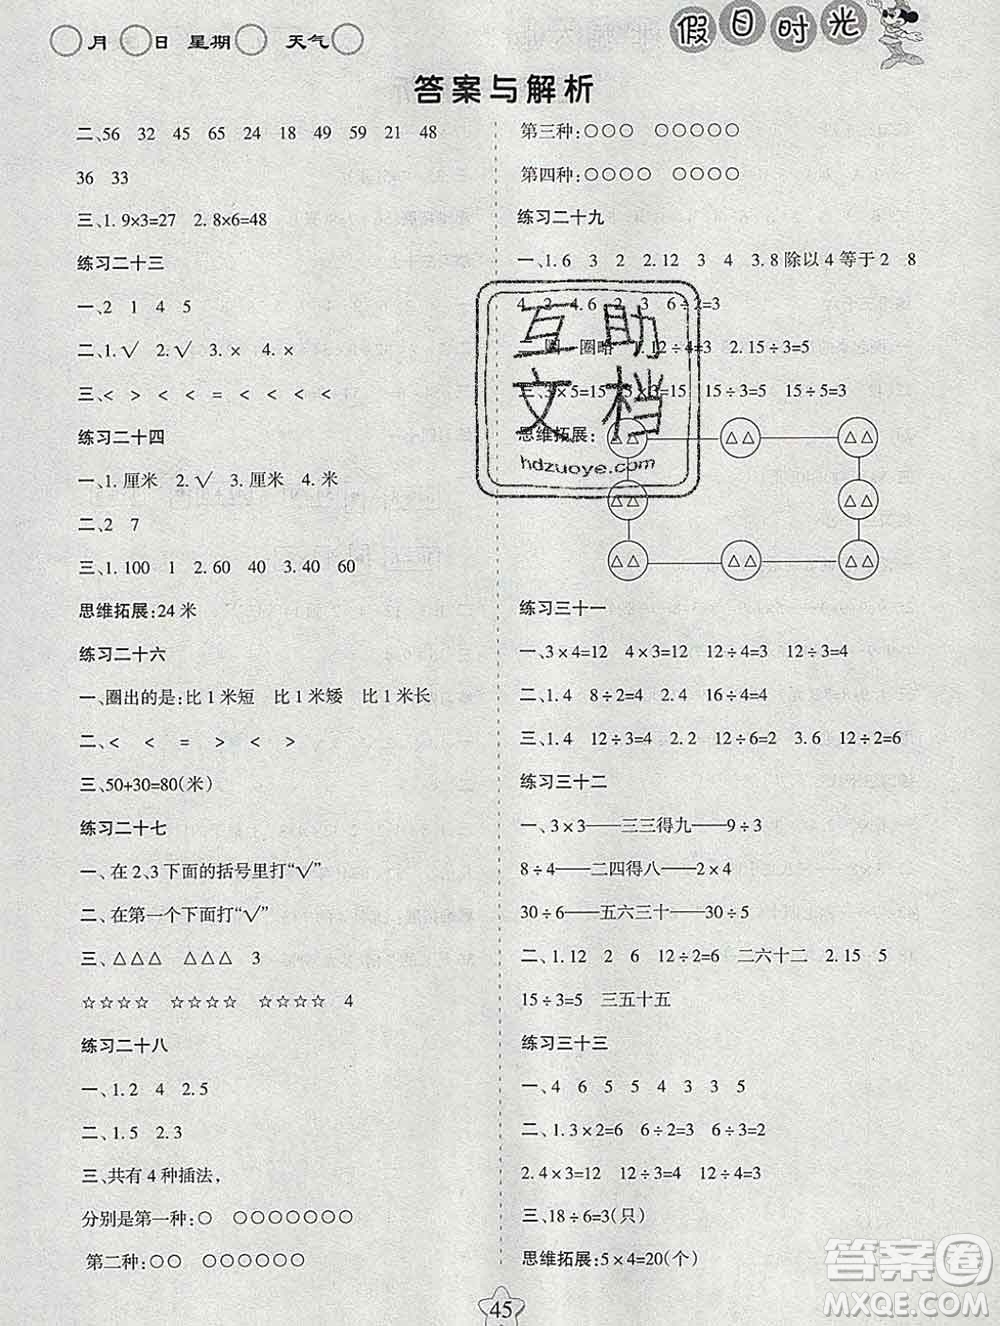 月 日 星期 天气
假日时光
答案与解析
二、56 32 45 65 24 18 49 59 21 48
36 33
三、1. 9×3=27 2. 8×6=48
练习二十三
一、2 1 4 5
二、1. √ 2. √ 3. × 4. ×
三、< > < < = < < < <
练习二十四
一、1. 厘米 2. √ 3. 厘米 4. 米
二、2 7
三、1. 100 1 2. 60 40 3. 40 60
思维拓展:24 米
练习二十六
一、圈出的是:比 1 米短 比 1 米矮 比 1 米长
二、< < = > < < <
三、50+30=80(米)
练习二十七
一、在 2、3 下面的括号里打“√”
二、在第一个下面打“√”
三、△△△ △△△ △△△ 3
☆☆☆☆ ☆☆☆☆ ☆☆☆☆ 4
练习二十八
一、1. 2 4 2. 5
二、1. 5 2. 3
三、共有 4 种插法，
分别是第一种:○ ○○○○○○○
第二种:○○ ○○○○○○
第三种:○○○ ○○○○○
第四种:○○○○ ○○○○
练习二十九
一、1. 6 3 2 2. 12 3 4 3. 8 除以 4 等于 2 8
4 2 4. 6 2 3 6÷2=3
二、圈一圈略 1. 12÷4=3 2. 15÷3=5
三、3×5=15 5×3=15 15÷3=5 15÷5=3
思维拓展:
△△ △△ △△
△△ △△
△△ △△ △△
练习三十一
一、3×4=12 4×3=12 12÷4=3 12÷3=4
二、1. 4 8÷2=4 2. 4 16÷4=4
三、1. 4 12÷3=4 2. 2 12÷6=2 3. 6 12÷2=6
练习三十二
一、3×3——三三得九——9÷3
8÷4——二四得八——2×4
30÷6——五六三十——30÷5
二、1. 12 2 6 12÷2=6 二六十二 2. 15 3 5
15÷3=5 三五十五
练习三十三
一、4 6 5 4 3 3 5
二、1. 3×2=6 6÷2=3 6÷3=2
2. 4×3=12 12÷3=4 12÷4=3
三、18÷6=3(只)
思维拓展:5×4=20(个)
45
互助文档
hdzuoye.com
答案圈
MXQE.COM